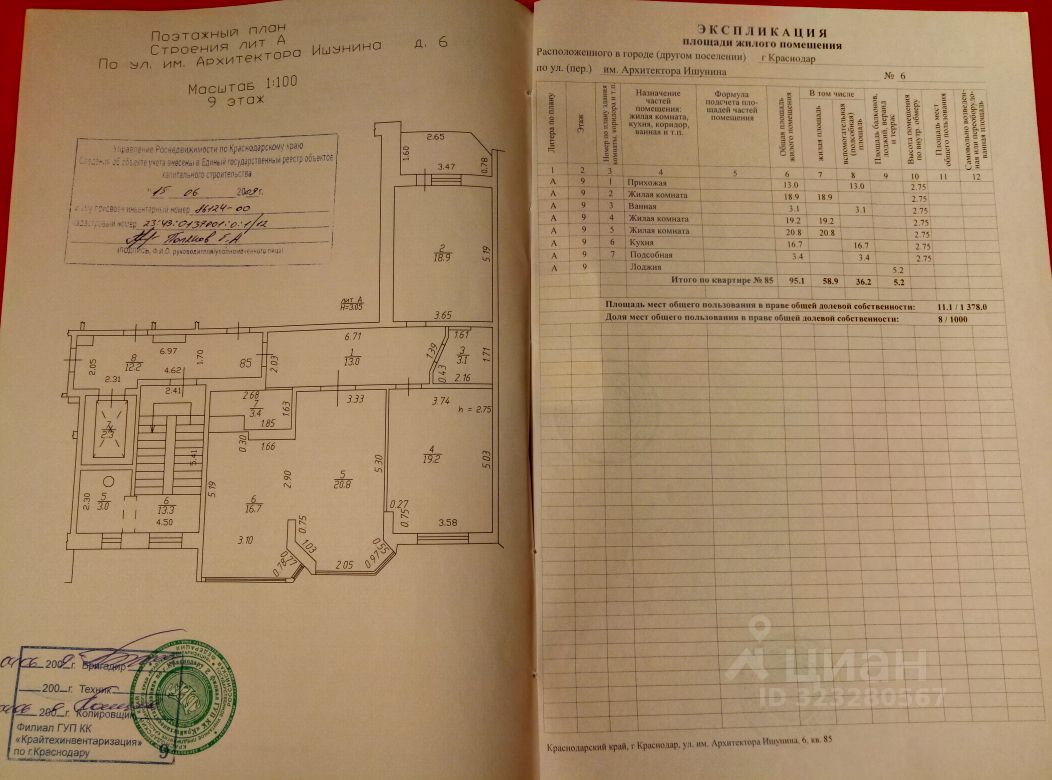 Поэтажный план
Строения лит А
По ул. им. Архитектора Ишунина д. 6
Масштаб 1:100
9 этаж
Управление Роснедвижимости по Краснодарскому краю
Сведения об объекте учета внесены в Единый государственный реестр объектов
капитального строительства
"15 06 2009 г.
инвентарный номер 86124-00
кадастровый номер
(подпись, Ф.И.О. руководителя/уполномоченного лица)
2.65
1.60
3.47
0.78
2
18.9
5.19
лит А
H=3.05
3.65
6.71
1.61
8
12.2
6.97
1.70
2.05
85
2.03
1
13.0
1.39
3
3.1
1.71
4.62
2.31
2.41
0.43
2.16
2.68
7
3.4
1.63
3.33
3.74
h = 2.75
1.85
7
2.3
0.30
1.66
5.41
4
19.2
5.03
5.30
5
20.8
2.90
5.19
2.30
5
3.0
6
13.3
4.50
6
16.7
0.27
0.75
3.58
0.75
3.10
1.03
0.77
0.78
2.05
0.97
0.55
200 г. Бригадир
200 г. Техник
200 г. Копировщик
Филиал ГУП КК
«Крайтехинвентаризация»
по г.Краснодару
9
ЭКСПЛИКАЦИЯ
площади жилого помещения
Расположенного в городе (другом поселении) г Краснодар
по ул. (пер.) им. Архитектора Ишунина № 6
Литера по плану
Этаж
Номер по плану здания комнаты, коридора и т.п.
Назначение частей помещения: жилая комната, кухня, коридор, ванная и т.п.
Формула подсчета площадей частей помещения
Общая площадь жилого помещения
В том числе
жилая площадь
вспомогательная (подсобная) площадь
Площадь балконов, лоджий, веранд и террас
Высота помещения по внутр. обмеру
Площадь мест общего пользования
Самовольно возведенная или переоборудованная площадь
1 2 3 4 5 6 7 8 9 10 11 12
А 9 1 Прихожая 13.0 13.0 2.75
А 9 2 Жилая комната 18.9 18.9 2.75
А 9 3 Ванная 3.1 3.1 2.75
А 9 4 Жилая комната 19.2 19.2 2.75
А 9 5 Жилая комната 20.8 20.8 2.75
А 9 6 Кухня 16.7 16.7 2.75
А 9 7 Подсобная 3.4 3.4 2.75
А 9 Лоджия 5.2
Итого по квартире № 85 95.1 58.9 36.2 5.2
Площадь мест общего пользования в праве общей долевой собственности: 11.1 / 1 378.0
Доля мест общего пользования в праве общей долевой собственности: 8 / 1000
Циан
ID 323280567
Краснодарский край, г Краснодар, ул. им. Архитектора Ишунина, 6, кв. 85